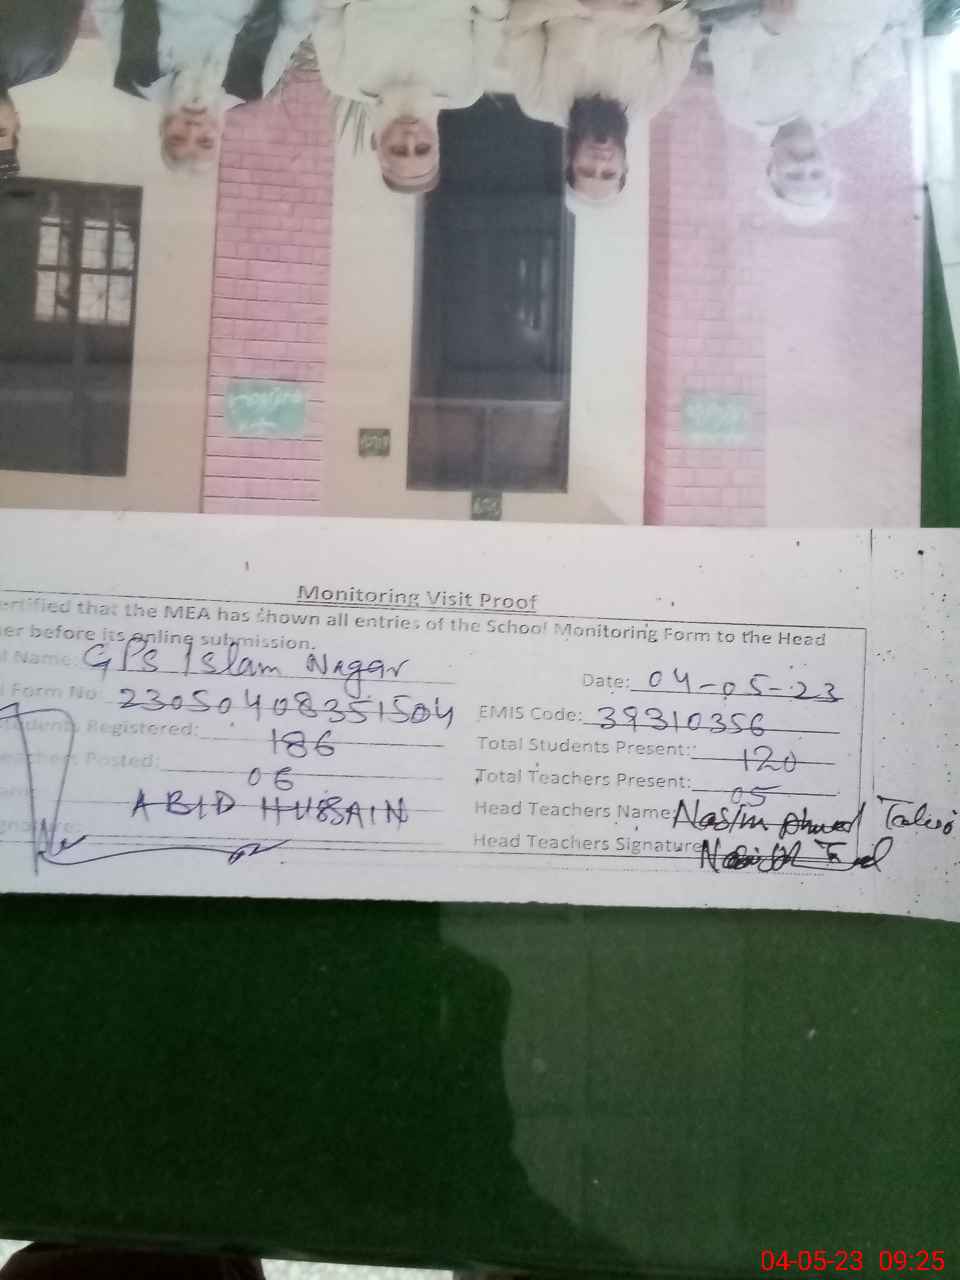 Monitoring Visit Proof
ertified that the MEA has shown all entries of the School Monitoring Form to the Head
er before its online submission.
l Name: GPS Islam Nagar
Date: 04-05-23
Form No: 23050408351504
EMIS Code: 39310356
Students Registered: 186
Total Students Present: 120
eachers Posted: 06
Total Teachers Present: 05
ABID HUSSAIN
Head Teachers Name: Nasim
gnature:
Head Teachers Signature
04-05-23 09:25